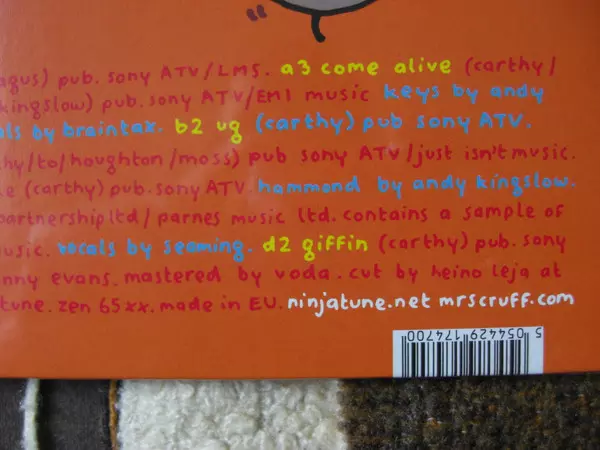 agus) pub. sony ATV/LMS. a3 come alive (carthy/
kingslow) pub. sony ATV/EMI music keys by andy
als by braintax. b2 ug (carthy) pub sony ATV.
hy/to/houghton/moss) pub sony ATV/just isn't music.
e (carthy) pub. sony ATV. hammond by andy kingslow.
partnership ltd/parnes music ltd. contains a sample of
usic. vocals by seaming. d2 giffin (carthy) pub. sony
nny evans. mastered by voda. cut by heino leja at
tune. zen 65xx. made in EU. ninjatune.net mrscruff.com
5 054429 174700